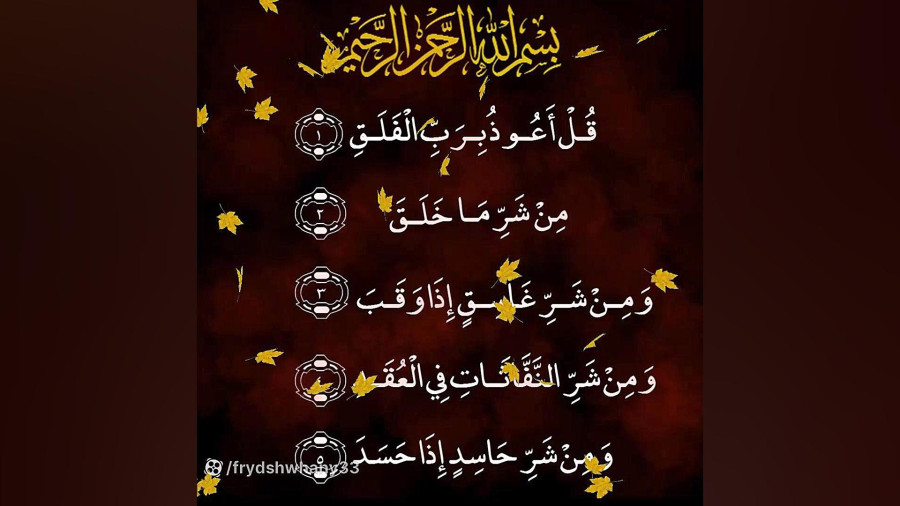 بِسْمِ اللَّهِ الرَّحْمَنِ الرَّحِيمِ
قُلْ أَعُوذُ بِرَبِّ الْفَلَقِ ١
مِنْ شَرِّ مَا خَلَقَ ٢
وَمِنْ شَرِّ غَاسِقٍ إِذَا وَقَبَ ٣
وَمِنْ شَرِّ النَّفَّاثَاتِ فِي الْعُقَدِ ٤
وَمِنْ شَرِّ حَاسِدٍ إِذَا حَسَدَ ٥
/frydshwhany33